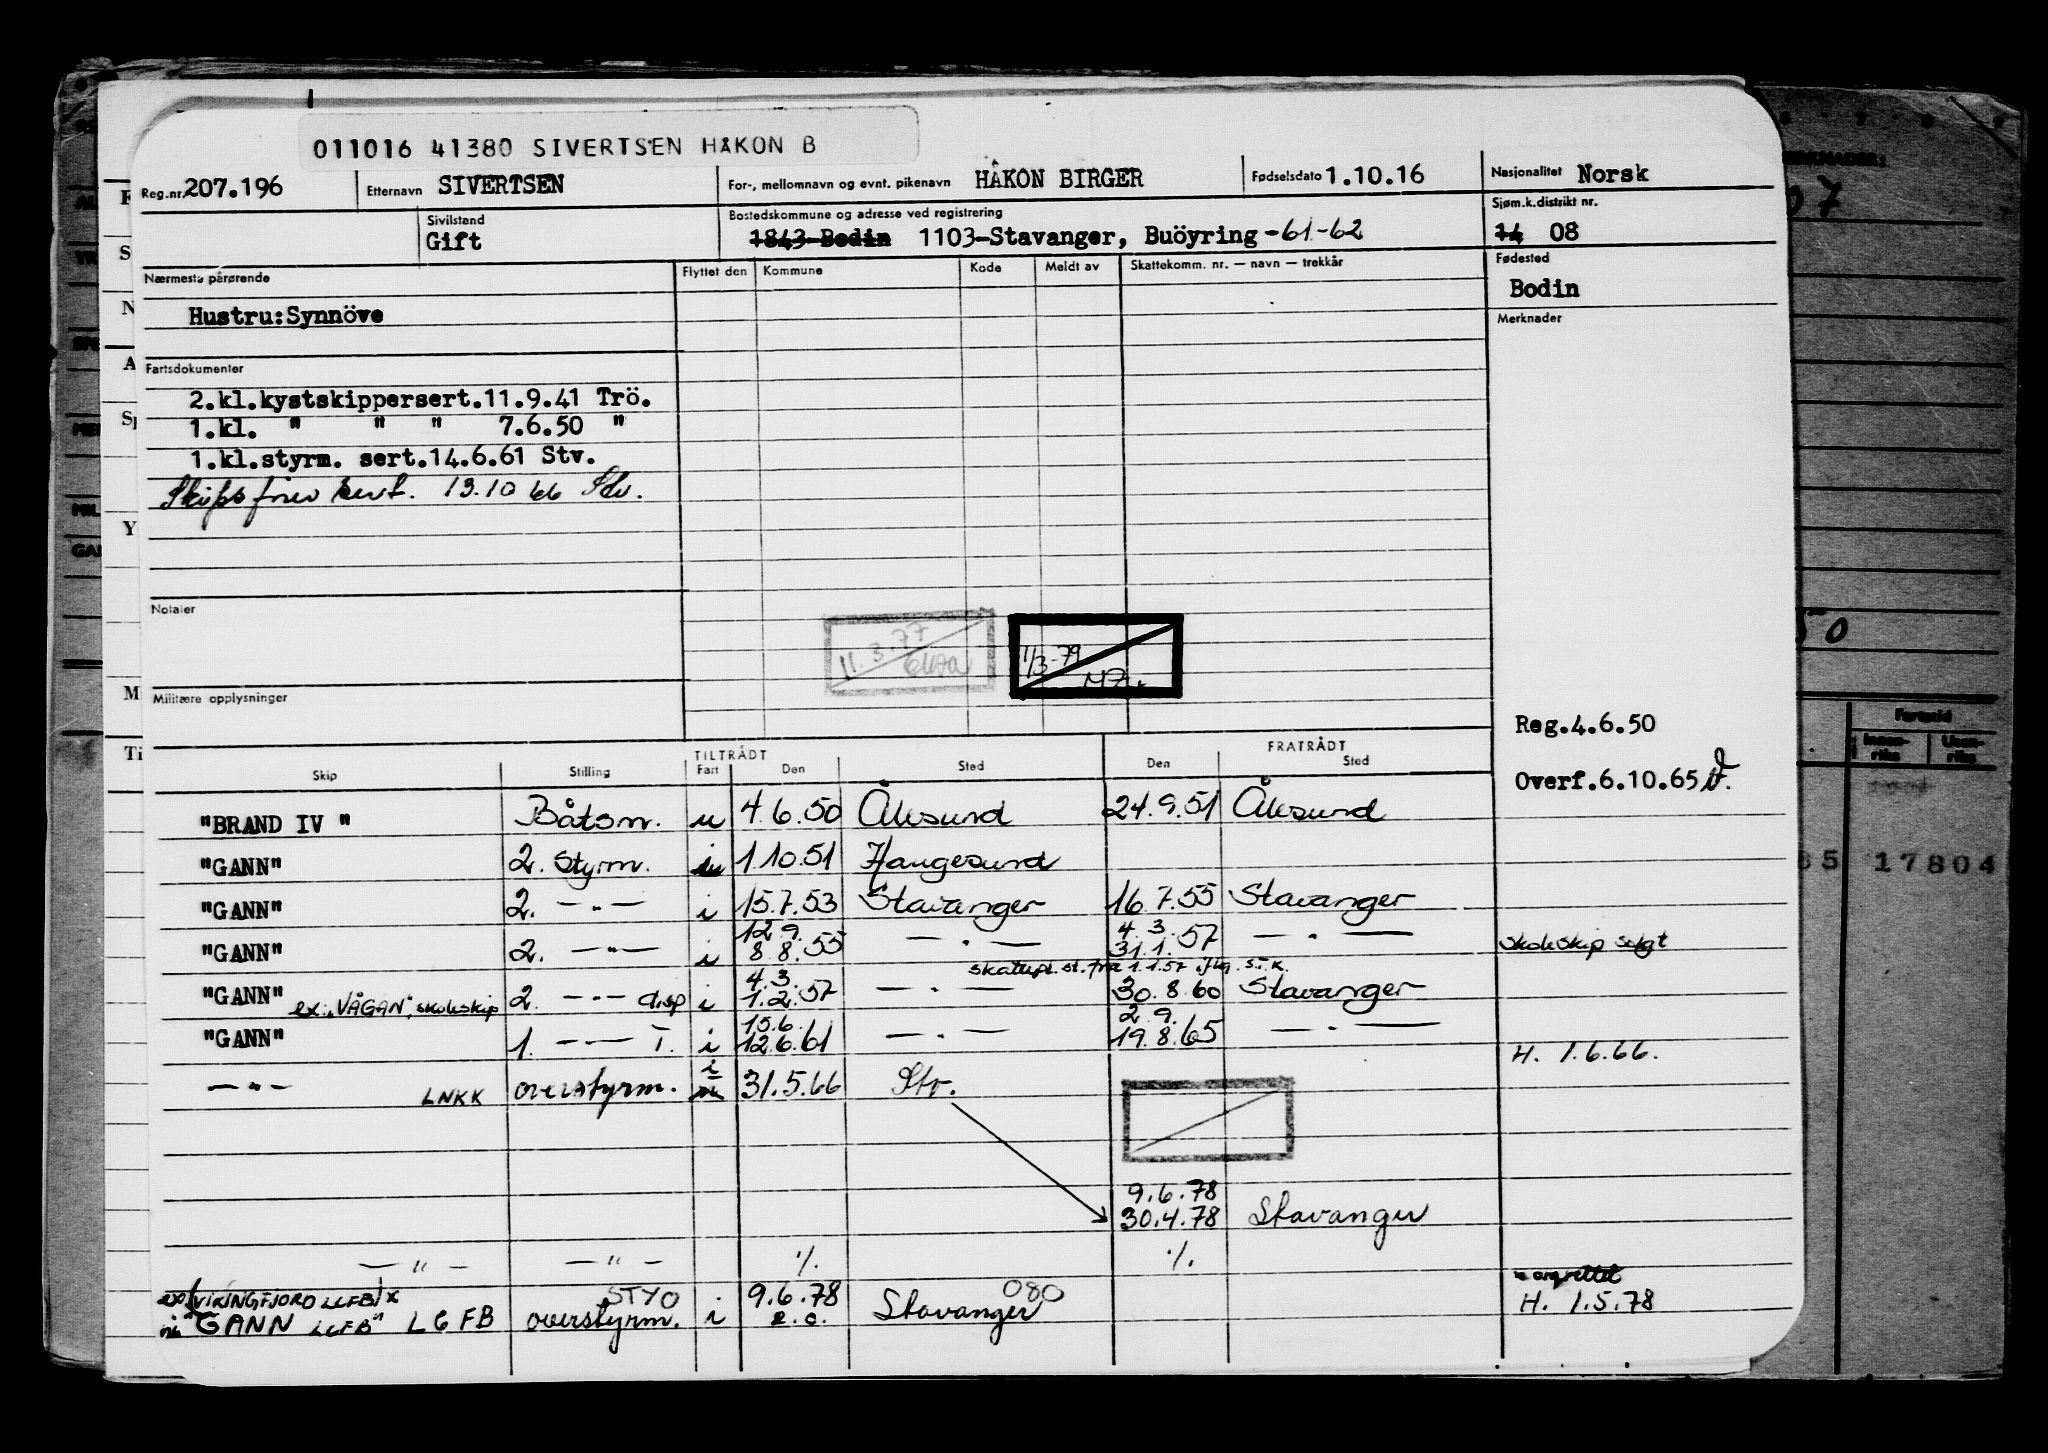 011016 41380 SIVERTSEN HÅKON B
Reg.nr. 207.196 Etternavn SIVERTSEN For-, mellomnavn og evnt. pikenavn HÅKON BIRGER Fødselsdato 1.10.16 Nasjonalitet Norsk
Sivilstand Gift Bostedskommune og adresse ved registrering 1843-Bodin 1103-Stavanger, Buöyring -61-62 Sjøm.k.distrikt nr. 14 08
Nærmeste pårørende Flyttet den Kommune Kode Meldt av Skattekomm. nr. — navn — trekkår Fødested
Bodin
Hustru:Synnöve
Merknader
Fartsdokumenter
2.kl.kystskippersert.11.9.41 Trö.
1.kl. " " " 7.6.50 "
1.kl.styrm. sert.14.6.61 Stv.
Skipsfører sert. 13.10 66 Stv.
Notater
11.3.77
1/3-79
Militære opplysninger
Reg.4.6.50
Overf.6.10.65
TILTRÅDT FRATRÅDT
Skip Stilling Fart Den Sted Den Sted
"BRAND IV " Båtsm. u 4.6.50 Ålesund 24.9.51 Ålesund
"GANN" 2. Styrm. 1.10.51 Haugesund
"GANN" 2. — " — i 15.7.53 Stavanger 16.7.55 Stavanger
12.9. 4.3.
"GANN" 2. — " — i 8.8.55 — " — 31.1.57 — " — skoleskip solgt
skattepl. st. fra 1.1.57 s.f.k.
4.3.
"GANN" ex. "VÅGAN", skoleskip 2. — " — disp i 1.2.57 — " — 30.8.60 Stavanger
15.6. 2.9.
"GANN" 1. — " — T. i 12.6.61 — " — 19.8.65 — " —
H. 1.6.66.
— " — LNKK overstyrm. i 31.5.66 Stv.
9.6.78
30.4.78 Stavanger
— " — — " — ./. ./.
ex (VIKINGFJORD LGFB) x STYO 9.6.78 080
"GANN LGFB" LGFB overstyrm. i Stavanger H. 1.5.78
07
50
Innen-
riks
Uten-
riks
17804